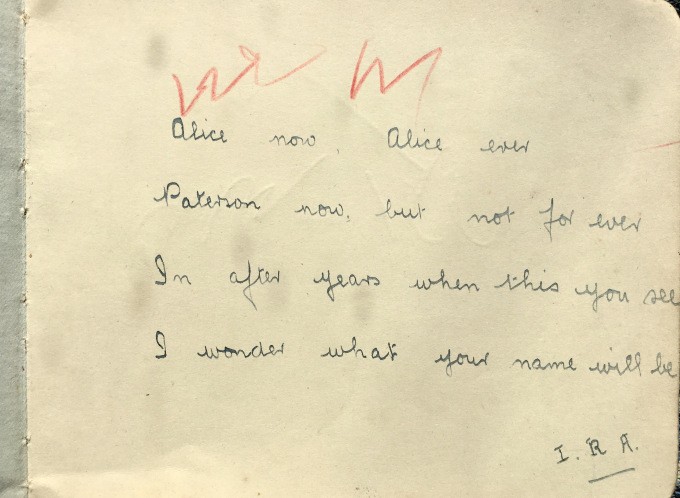 Alice now, Alice ever
Paterson now, but not for ever
In after years when this you see
I wonder what your name will be
I. R A.